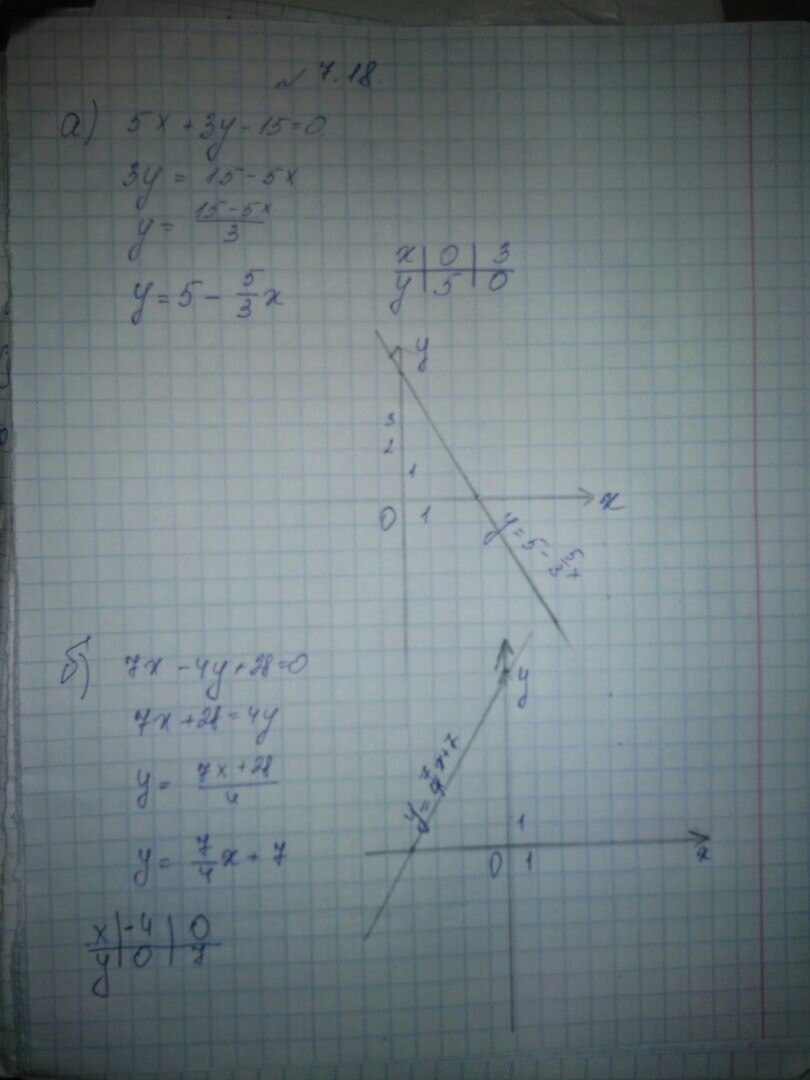 № 7.18.
а) 5x + 3y - 15 = 0
3y = 15 - 5x
y = (15 - 5x)/3
y = 5 - 5/3 x
x | 0 | 3
y | 5 | 0
y
3
2
1
0 1
x
y = 5 - 5/3 x
б) 7x - 4y + 28 = 0
7x + 28 = 4y
y = (7x + 28)/4
y = 7/4 x + 7
x | -4 | 0
y | 0 | 7
y
y = 7/4 x + 7
1
0 1
x